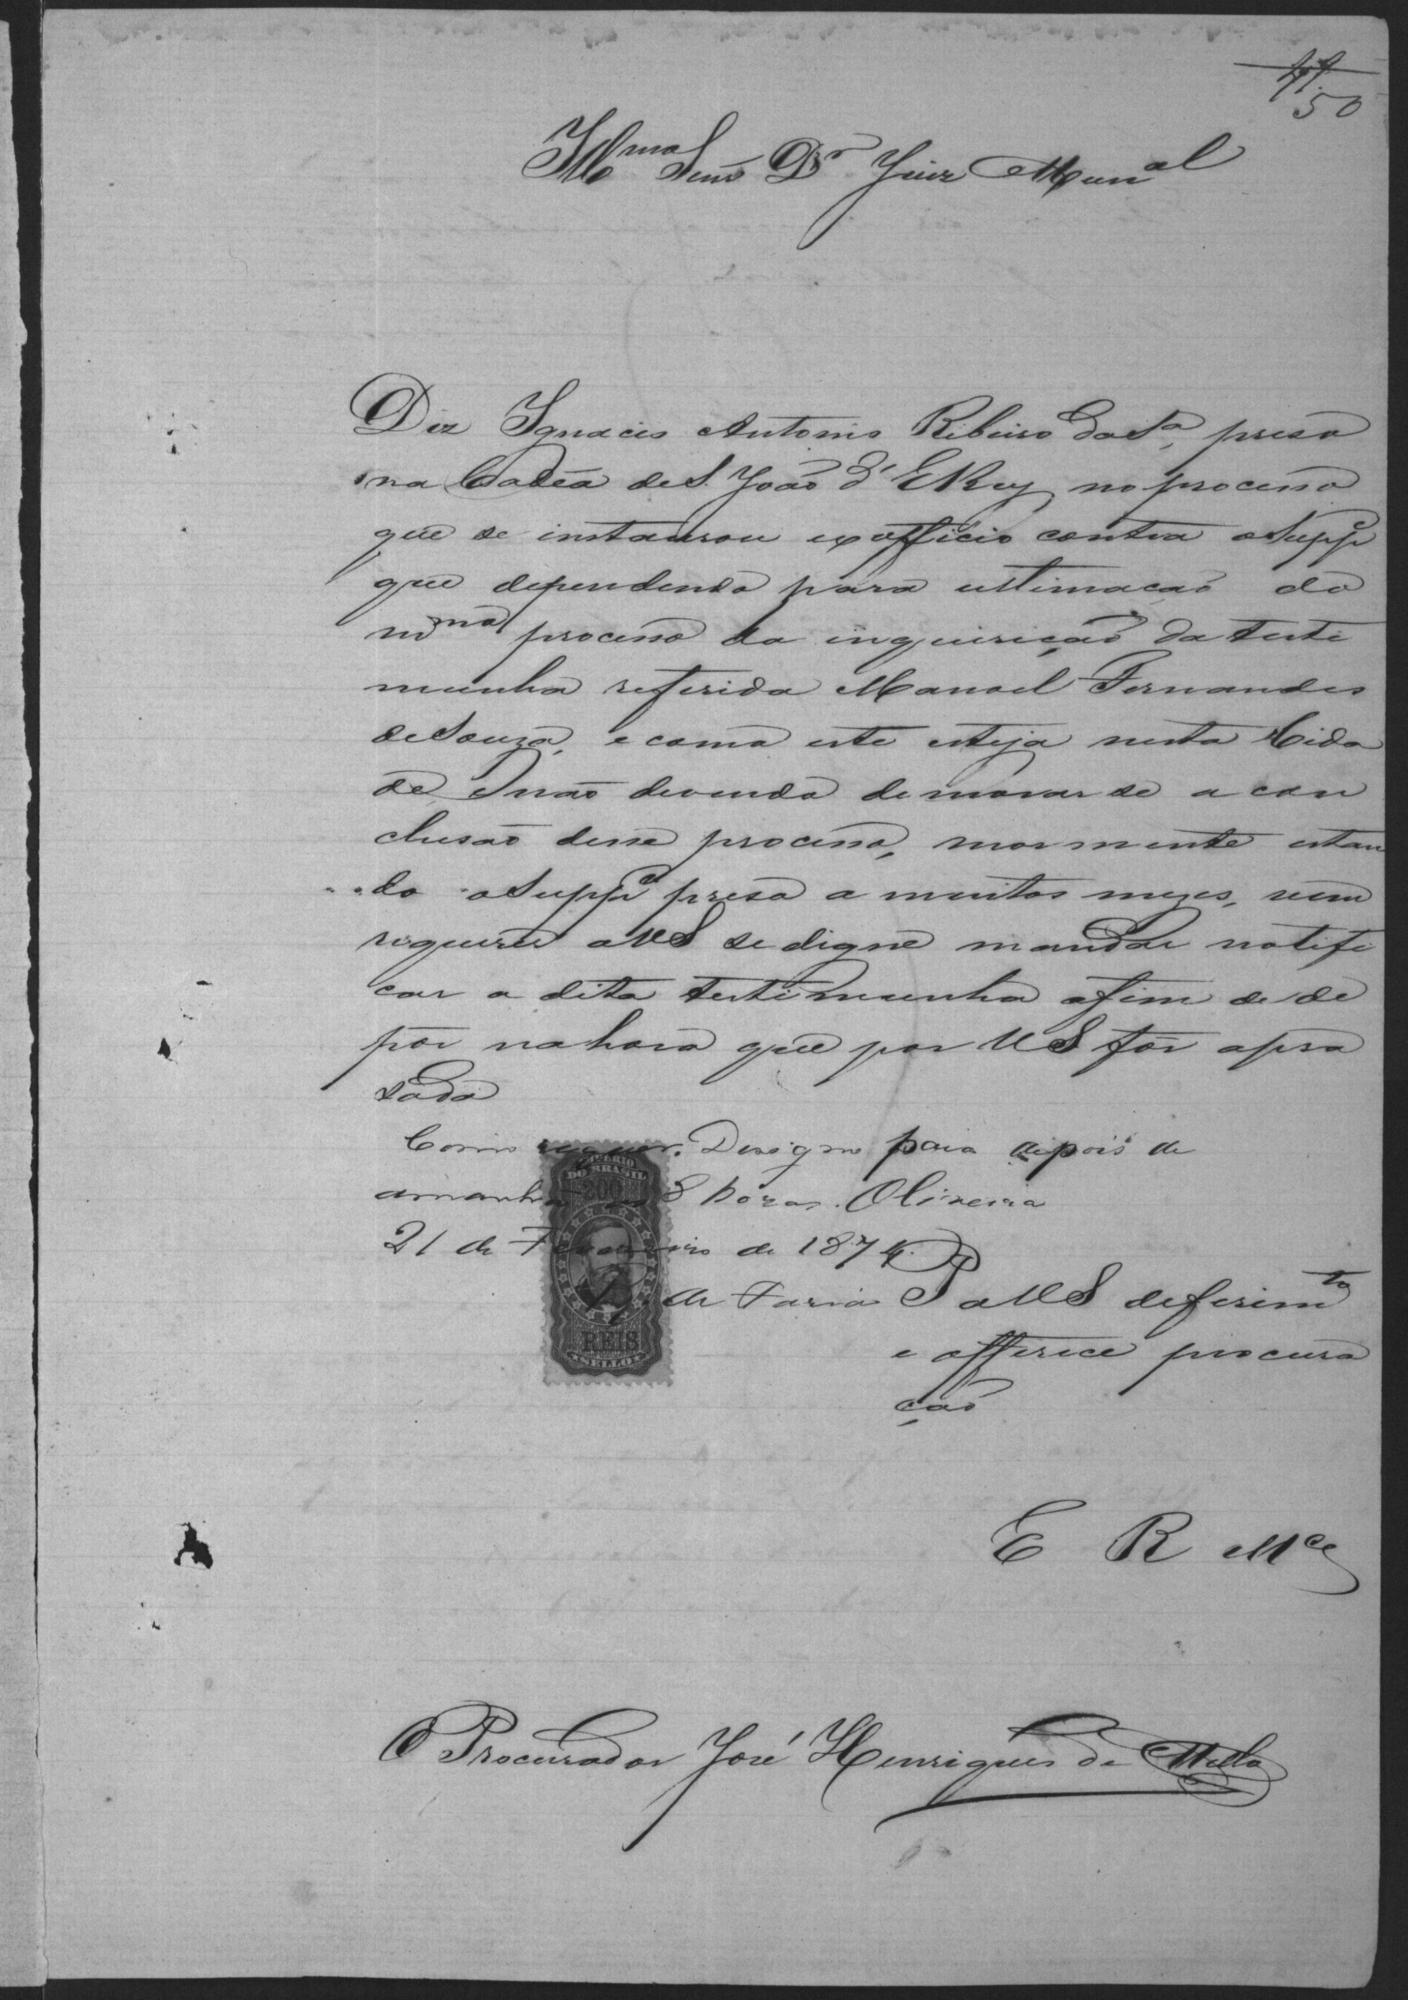 50
Illmo Senr Dr Juiz Munal
Diz Ignacio Antonio Ribeiro da Sa, preso
na Cadêa de S. João d'El Rey no processo
que se instaurou ex officio contra o Suppe
que dependendo para ultimação do
mmo processo da inquirição da teste
munha referida Manoel Fernandes
de Souza, e como este esteja nesta Cida
de, e não devendo demorar se a con
clusão desse processo, mormente estan
do o Suppe preso a muitos mezes, vem
requerer a VS se digne mandar notifi
car a dita testemunha afim de de
pôr na hora que por VS fôr apra
sada
Como requer. Designo para depois de
amanhã as 8 horas. Oliveira
21 de Fevereiro de 1874.
de Faria
IMPERIO
DO BRASIL
200
REIS
SELLO
P a VS deferimto
e offerece procura
ção
E R Mce
O Procurador José Henriques de Mello